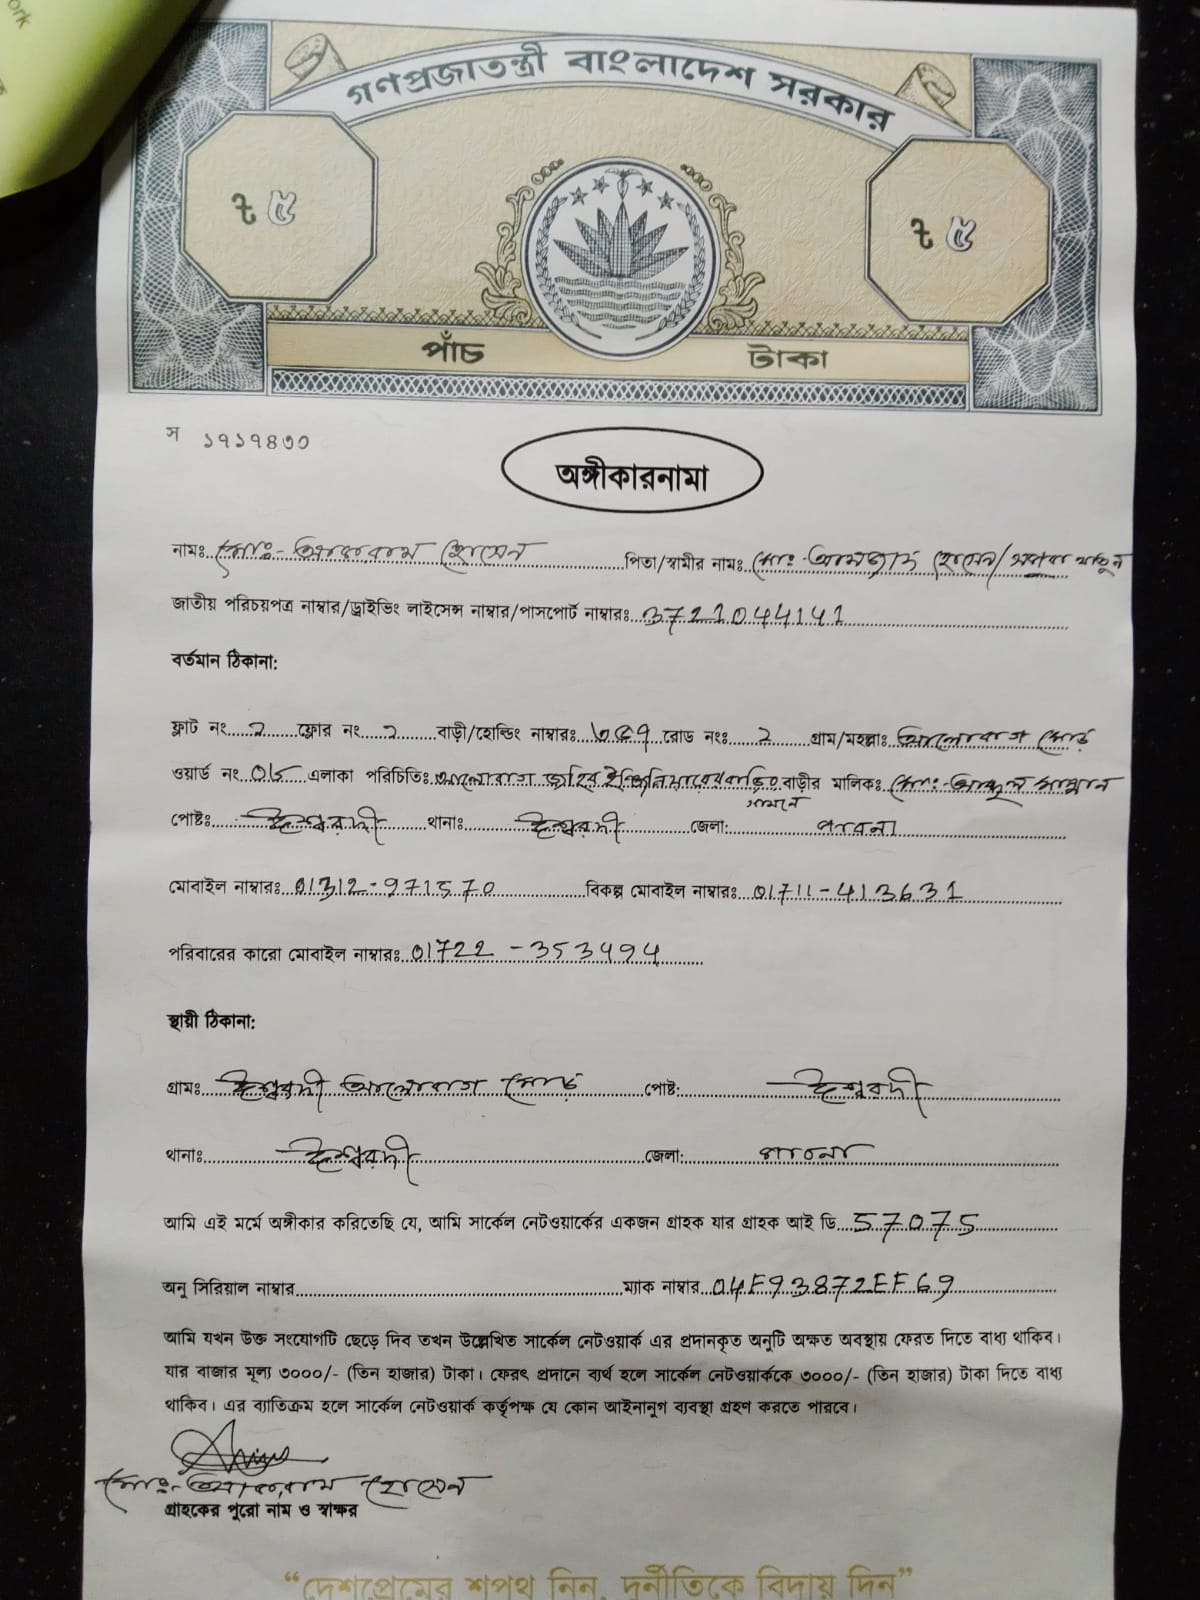 ork
গণপ্রজাতন্ত্রী বাংলাদেশ সরকার
৳ ৫ ৳ ৫
পাঁচ টাকা
স ১৭১৭৪৩০
অঙ্গীকারনামা
নামঃ মোঃ- আকরাম হোসেন পিতা/স্বামীর নামঃ মোঃ-আমজাদ হোসেন/ খাতুন
জাতীয় পরিচয়পত্র নাম্বার/ড্রাইভিং লাইসেন্স নাম্বার/পাসপোর্ট নাম্বারঃ 3721044141
বর্তমান ঠিকানা:
ফ্লাট নং 2 ফ্লোর নং 2 বাড়ী/হোল্ডিং নাম্বারঃ রোড নংঃ 2 গ্রাম/মহল্লাঃ আলোবাগ মোড়
ওয়ার্ড নং এলাকা পরিচিতিঃ আলোবাগ বাড়ির সামনে বাড়ীর মালিকঃ মোঃ-আব্দুল মান্নান
পোষ্টঃ ঈশ্বরদী থানাঃ ঈশ্বরদী জেলা: পাবনা
মোবাইল নাম্বারঃ 01312-971570 বিকল্প মোবাইল নাম্বারঃ 01711-413631
পরিবারের কারো মোবাইল নাম্বারঃ 01722-353494
স্থায়ী ঠিকানা:
গ্রামঃ ঈশ্বরদী আলোবাগ মোড় পোষ্ট: ঈশ্বরদী
থানাঃ ঈশ্বরদী জেলা: পাবনা
আমি এই মর্মে অঙ্গীকার করিতেছি যে, আমি সার্কেল নেটওয়ার্কের একজন গ্রাহক যার গ্রাহক আই ডি 57075
অনু সিরিয়াল নাম্বার ম্যাক নাম্বার 04F93872EF69
আমি যখন উক্ত সংযোগটি ছেড়ে দিব তখন উল্লেখিত সার্কেল নেটওয়ার্ক এর প্রদানকৃত অনুটি অক্ষত অবস্থায় ফেরত দিতে বাধ্য থাকিব।
যার বাজার মূল্য ৩০০০/- (তিন হাজার) টাকা। ফেরৎ প্রদানে ব্যর্থ হলে সার্কেল নেটওয়ার্ককে ৩০০০/- (তিন হাজার) টাকা দিতে বাধ্য
থাকিব। এর ব্যাতিক্রম হলে সার্কেল নেটওয়ার্ক কর্তৃপক্ষ যে কোন আইনানুগ ব্যবস্থা গ্রহণ করতে পারবে।
মোঃ-আকরাম হোসেন
গ্রাহকের পুরো নাম ও স্বাক্ষর
“দেশপ্রেমের শপথ নিন, দুর্নীতিকে বিদায় দিন”